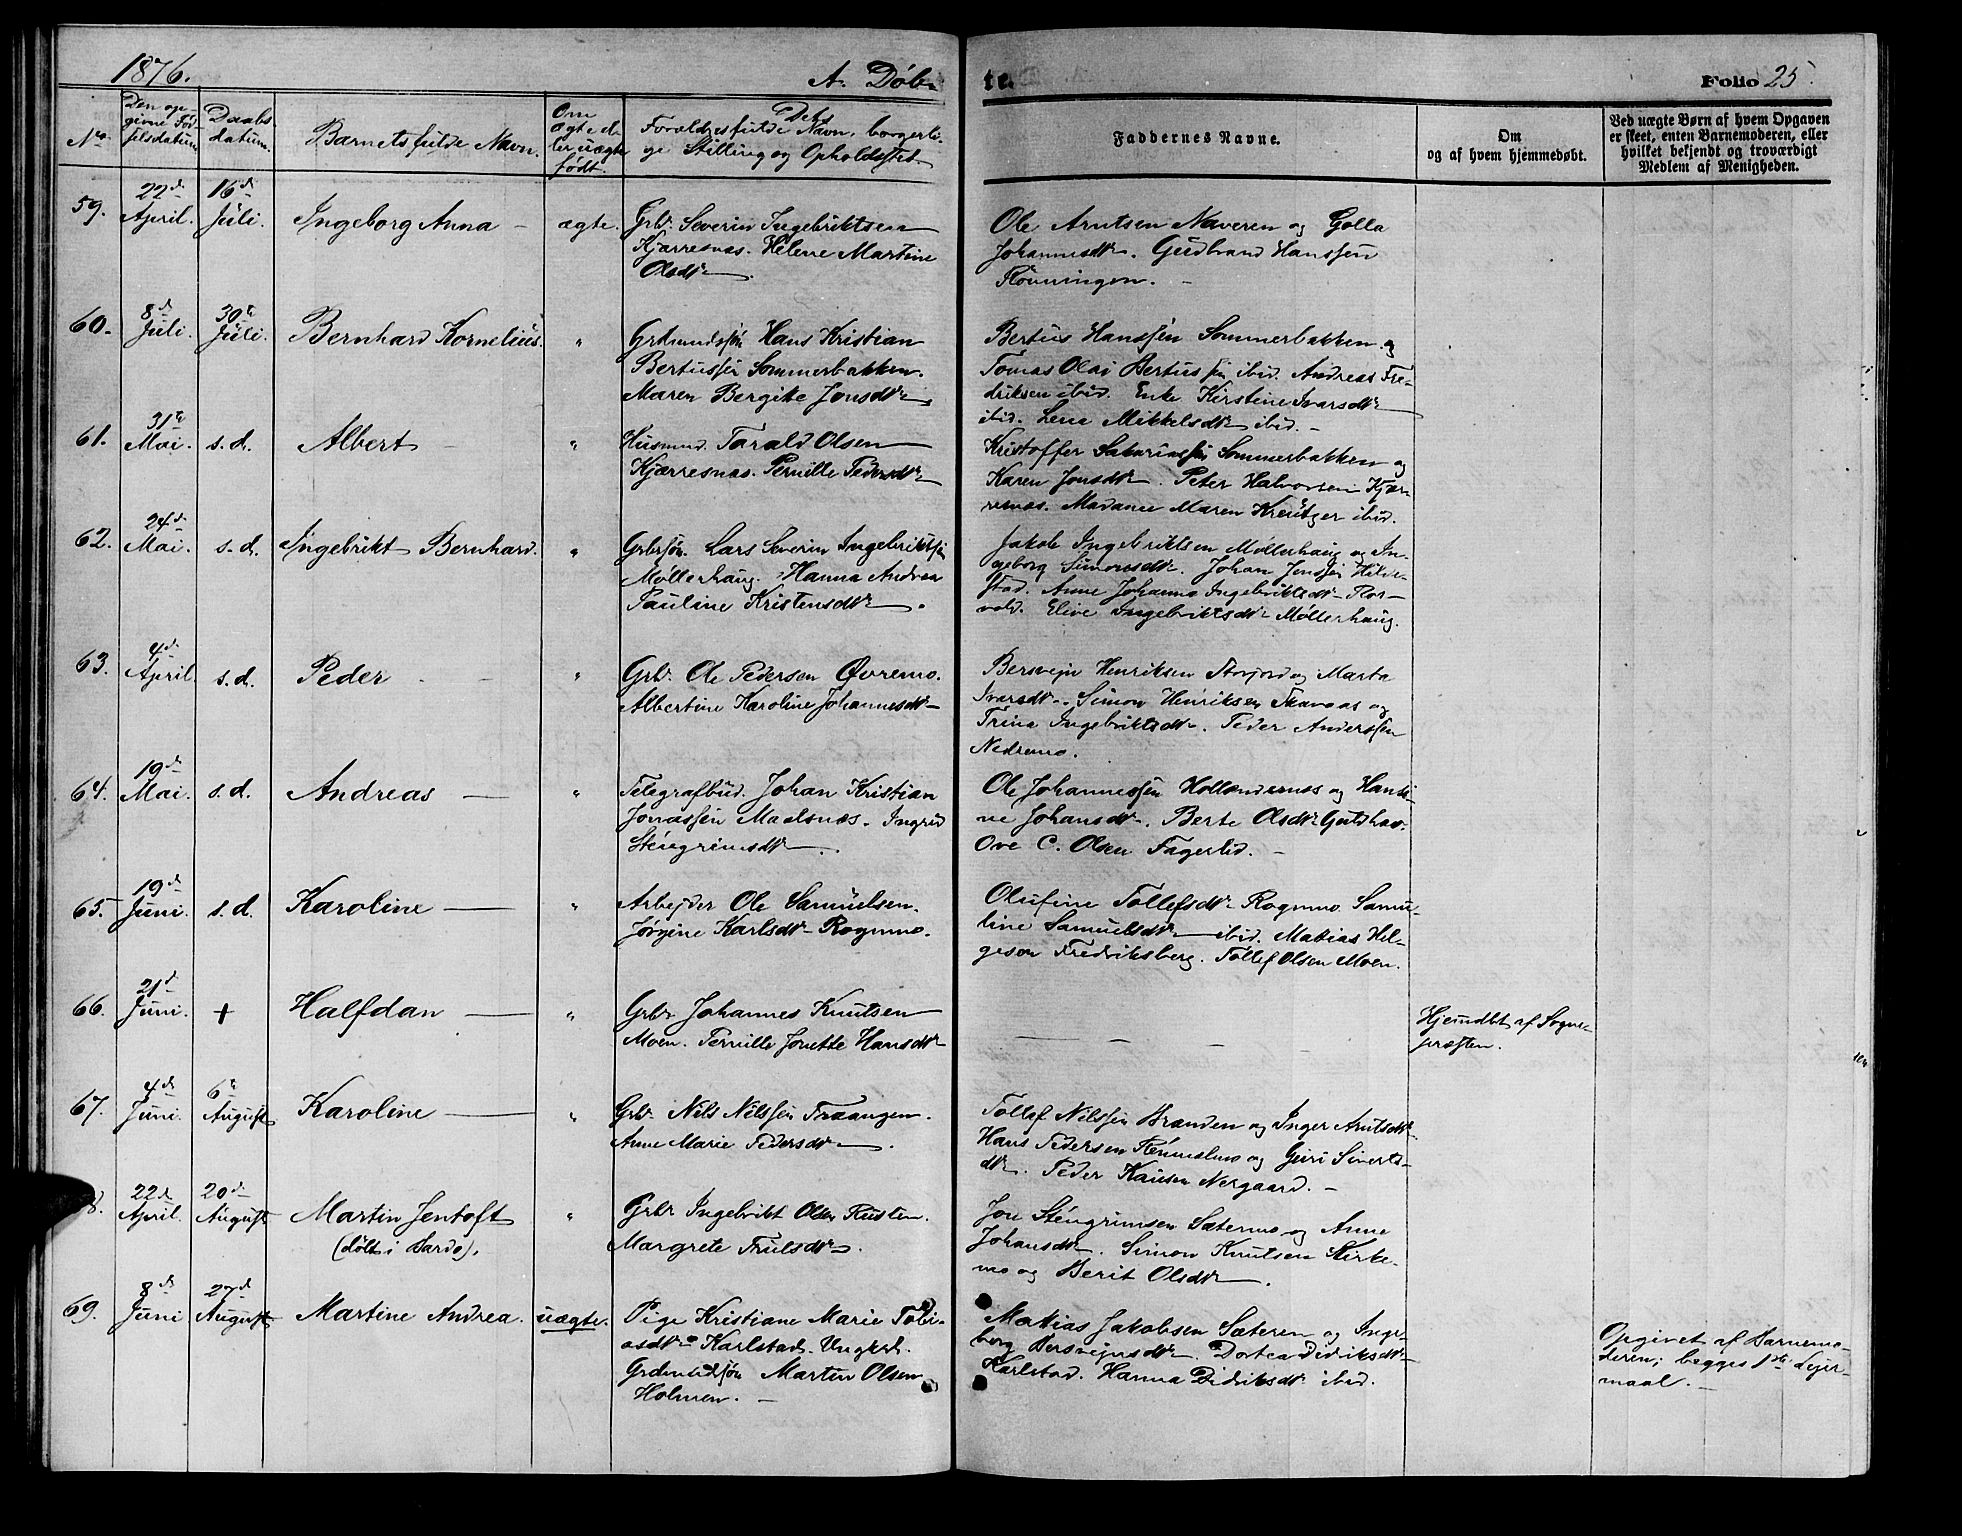 1876.
A. Døb-
te.
Folio 25.
No.
Den op-
givne Fød-
selsdatum
Daabs
datum.
Barnets fulde Navn.
Om
ægte el-
ler uægte
født.
Dets
Forældres fulde Navn, borgerli-
ge Stilling og Opholdssted
Faddernes Navne.
Om
og af hvem hjemmedøbt.
Ved uægte Børn af hvem Opgaven
er skeet, enten Barnemoderen, eller
hvilket bekjendt og troværdigt
Medlem af Menigheden.
59.
22de
April.
16de
Juli.
Ingeborg Anna
ægte.
Grbr. Severin Ingebriktsen
Kjærresnæs. Helene Martine
Olsdtr.
Ole Arntsen Naveren og Golla
Johannesdtr. Gudbrand Hanssen
Rönningen.
60.
8de
Juli.
30te
Juli.
Bernhard Kornelius.
"
Grdmandssøn Hans Kristian
Bertussen Sommerbakken.
Maren Bergitte Jonsdtr.
Bertus Hanssen Sommerbakken og
Tomas Olai Bertussen ibid. Andreas Fre-
driksen ibid. Enke Kirstine Ivarsdtr
ibid. Lene Mikkelsdtr ibid.
61.
31te
Mai.
s. d.
Albert
"
Husmnd. Tarald Olsen
Kjærresnæs. Pernille Pedersdtr
Kristoffer Sommerbakken og
Karen Jonsdtr. Peter Halvorsen Kjær-
resnæs. Madame Maren Kreutzer ibid.
62.
24de
Mai.
s. d.
Ingebrikt Bernhard.
"
Grbrsøn. Lars Severin Ingebriktsen
Møllerhaug. Hanna Andrea
Pauline Kristensdtr.
Jakob Ingebriktsen Møllerhaug og In-
geborg Simonsdtr. Johan Jenssen Hilde-
stad. Anne Johanna Ingebriktsdtr Flor-
vold. Eline Ingebriktsdtr Møllerhaug.
63.
4de
April
s. d.
Peder
"
Grbr. Ole Pedersen Øvremo.
Albertine Karoline Johannesdtr
Bersvejn Henriksen Storjord og Marta
Ivarsdtr. Simon Henriksen og
Trina Ingebriktsdtr. Peder Anderssen
Nedremo.
64.
19de
Mai.
s. d.
Andreas
"
Telegrafbud. Johan Kristian
Jonassen Maalsnæs. Ingrid
Stengrimsdtr.
Ole Johannessen Hollændernæs og Hansi-
ne Johansdtr. Berte Olsdtr Guldhav.
Ove C. Olsen Fagerlid.
65.
19de
Juni.
s. d.
Karoline
"
Arbejder Ole Samuelsen.
Jørgine Karlsdtr Rognmo.
Olufine Tollefsdtr Rognmo. Samu-
line Samuelsdtr ibid. Matias Hel-
gesen Fredriksberg. Tollef Olsen Moen.
66.
21de
Juni.
+
Halfdan
"
Grbr Johannes Knutsen
Moen. Pernille Jonette Hansdtr
Hjemdbt af Sogne-
præsten.
67.
4de
Juni.
6te
August
Karoline
"
Grbr. Nils Nilssen Fraangen.
Anne Marie Pedersdtr.
Tollef Nilssen Brænden og Inger Arntsdtr.
Hans Pedersen Rennelmo og Guri Siverts-
dtr. Peder Nergaard.
8.
22de
April.
20de
August
Martin Jentoft
(døbt i Bardo).
"
Grbr Ingebrikt Olsen Rusten.
Margrete Trulsdtr.
Jon Stengrimsen Sætermo og Anne
Johansdtr. Simon Knutsen Kirke-
mo og Berit Olsdtr.
69.
8de
Juni
27de
August
Martine Andrea.
uægte.
Pige Kristiane Marie Tobi-
asdtr Karlstad. Ungkrl.
Grdmandssøn Martin Olsen
Holmen.
Matias Jakobsen Sæteren og Inge-
borg Bersvejnsdtr. Dortea Didriksdtr
Karlstad. Hanna Didriksdtr ibid.
Opgivet af Barnemo-
deren; begges 1ste Lejer-
maal.